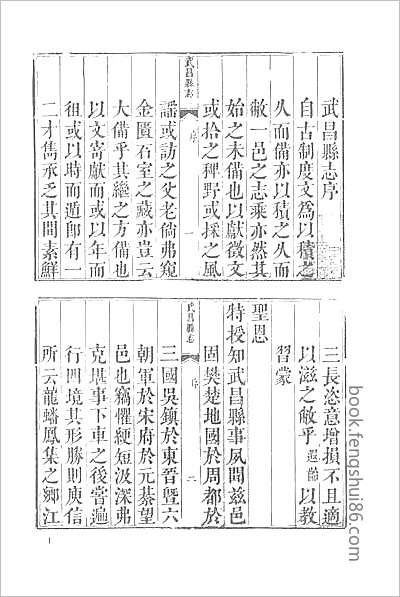 武昌縣志序
自古制度文為以積之
久而備亦以積之久而
敝一邑之志乘亦然其
始之未備也以獻徵文
武昌縣志
序
一
或拾之稗野或採之風
謡或訪之父老倘弗窺
金匱石室之藏亦豈云
大備乎其繼之方備也
以文寄獻而或以年而
徂或以時而遁即有一
二才雋承乏其間素鮮
三長恣意增損不且適
以滋之敝乎遐齡以教
習蒙
聖恩
特授知武昌縣事夙聞兹邑
武昌縣志
序
二
固樊楚地國於周都於
三國吳鎮於東晉暨六
朝軍於宋府於元綦望
邑也竊懼綆短汲深弗
克堪事下車之後嘗遍
行四境其形勝則庾信
所云龍蟠鳳集之鄉江
book.fengshui86.com